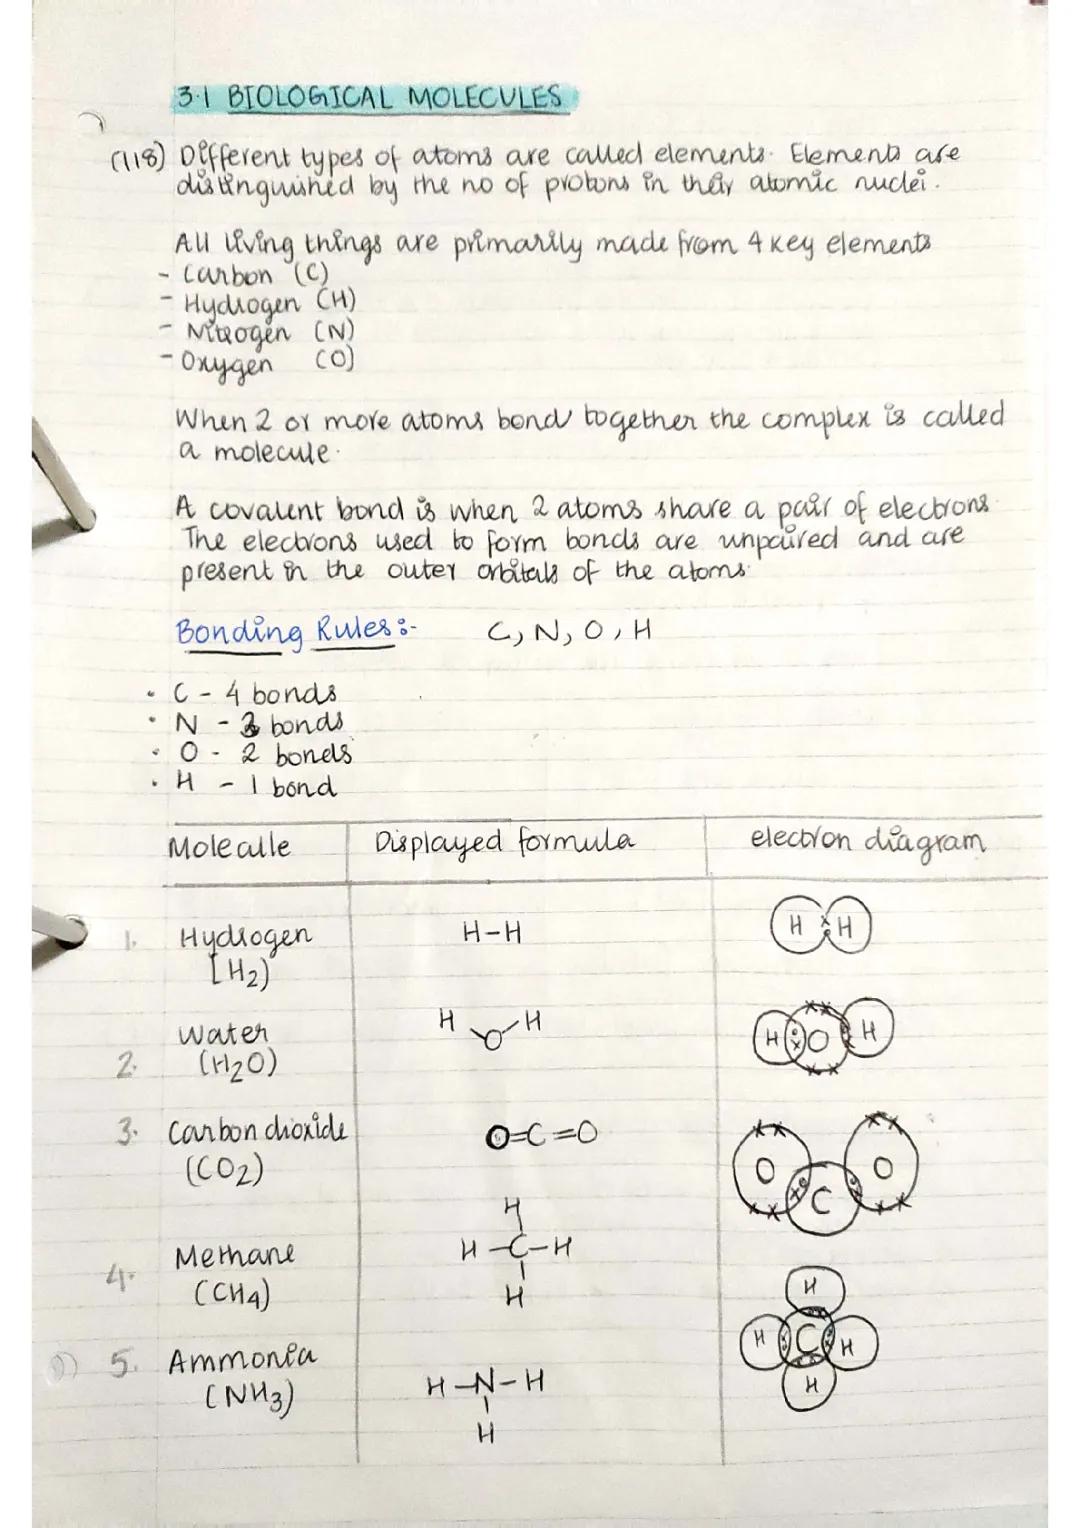 3.1 BIOLOGICAL MOLECULES
(118) Different types of atoms are called elements. Elements are
distinguished by the no of protons in their atomic nuclei.
All living things are primarily made from 4 key elements
- Carbon (C)
- Hydrogen (H)
- Nitrogen (N)
- Oxygen (O)
When 2 or more atoms bond together the complex is called
a molecule.
A covalent bond is when 2 atoms share a pair of electrons.
The electrons used to form bonds are unpaired and are
present in the outer orbitals of the atoms.
Bonding Rules:- C, N, O, H
• C - 4 bonds
• N - 3 bonds
• O - 2 bonds
• H - 1 bond
Molecule Displayed formula electron diagram
1. Hydrogen H-H H H
[H2)
H O H H O H
2. Water
(H2O)
3. Carbon dioxide O=C=O O C O
(CO2)
H
4. Methane H-C-H
(CH4) H
H
H C H
H
5. Ammonia
(NH3) H-N-H
H